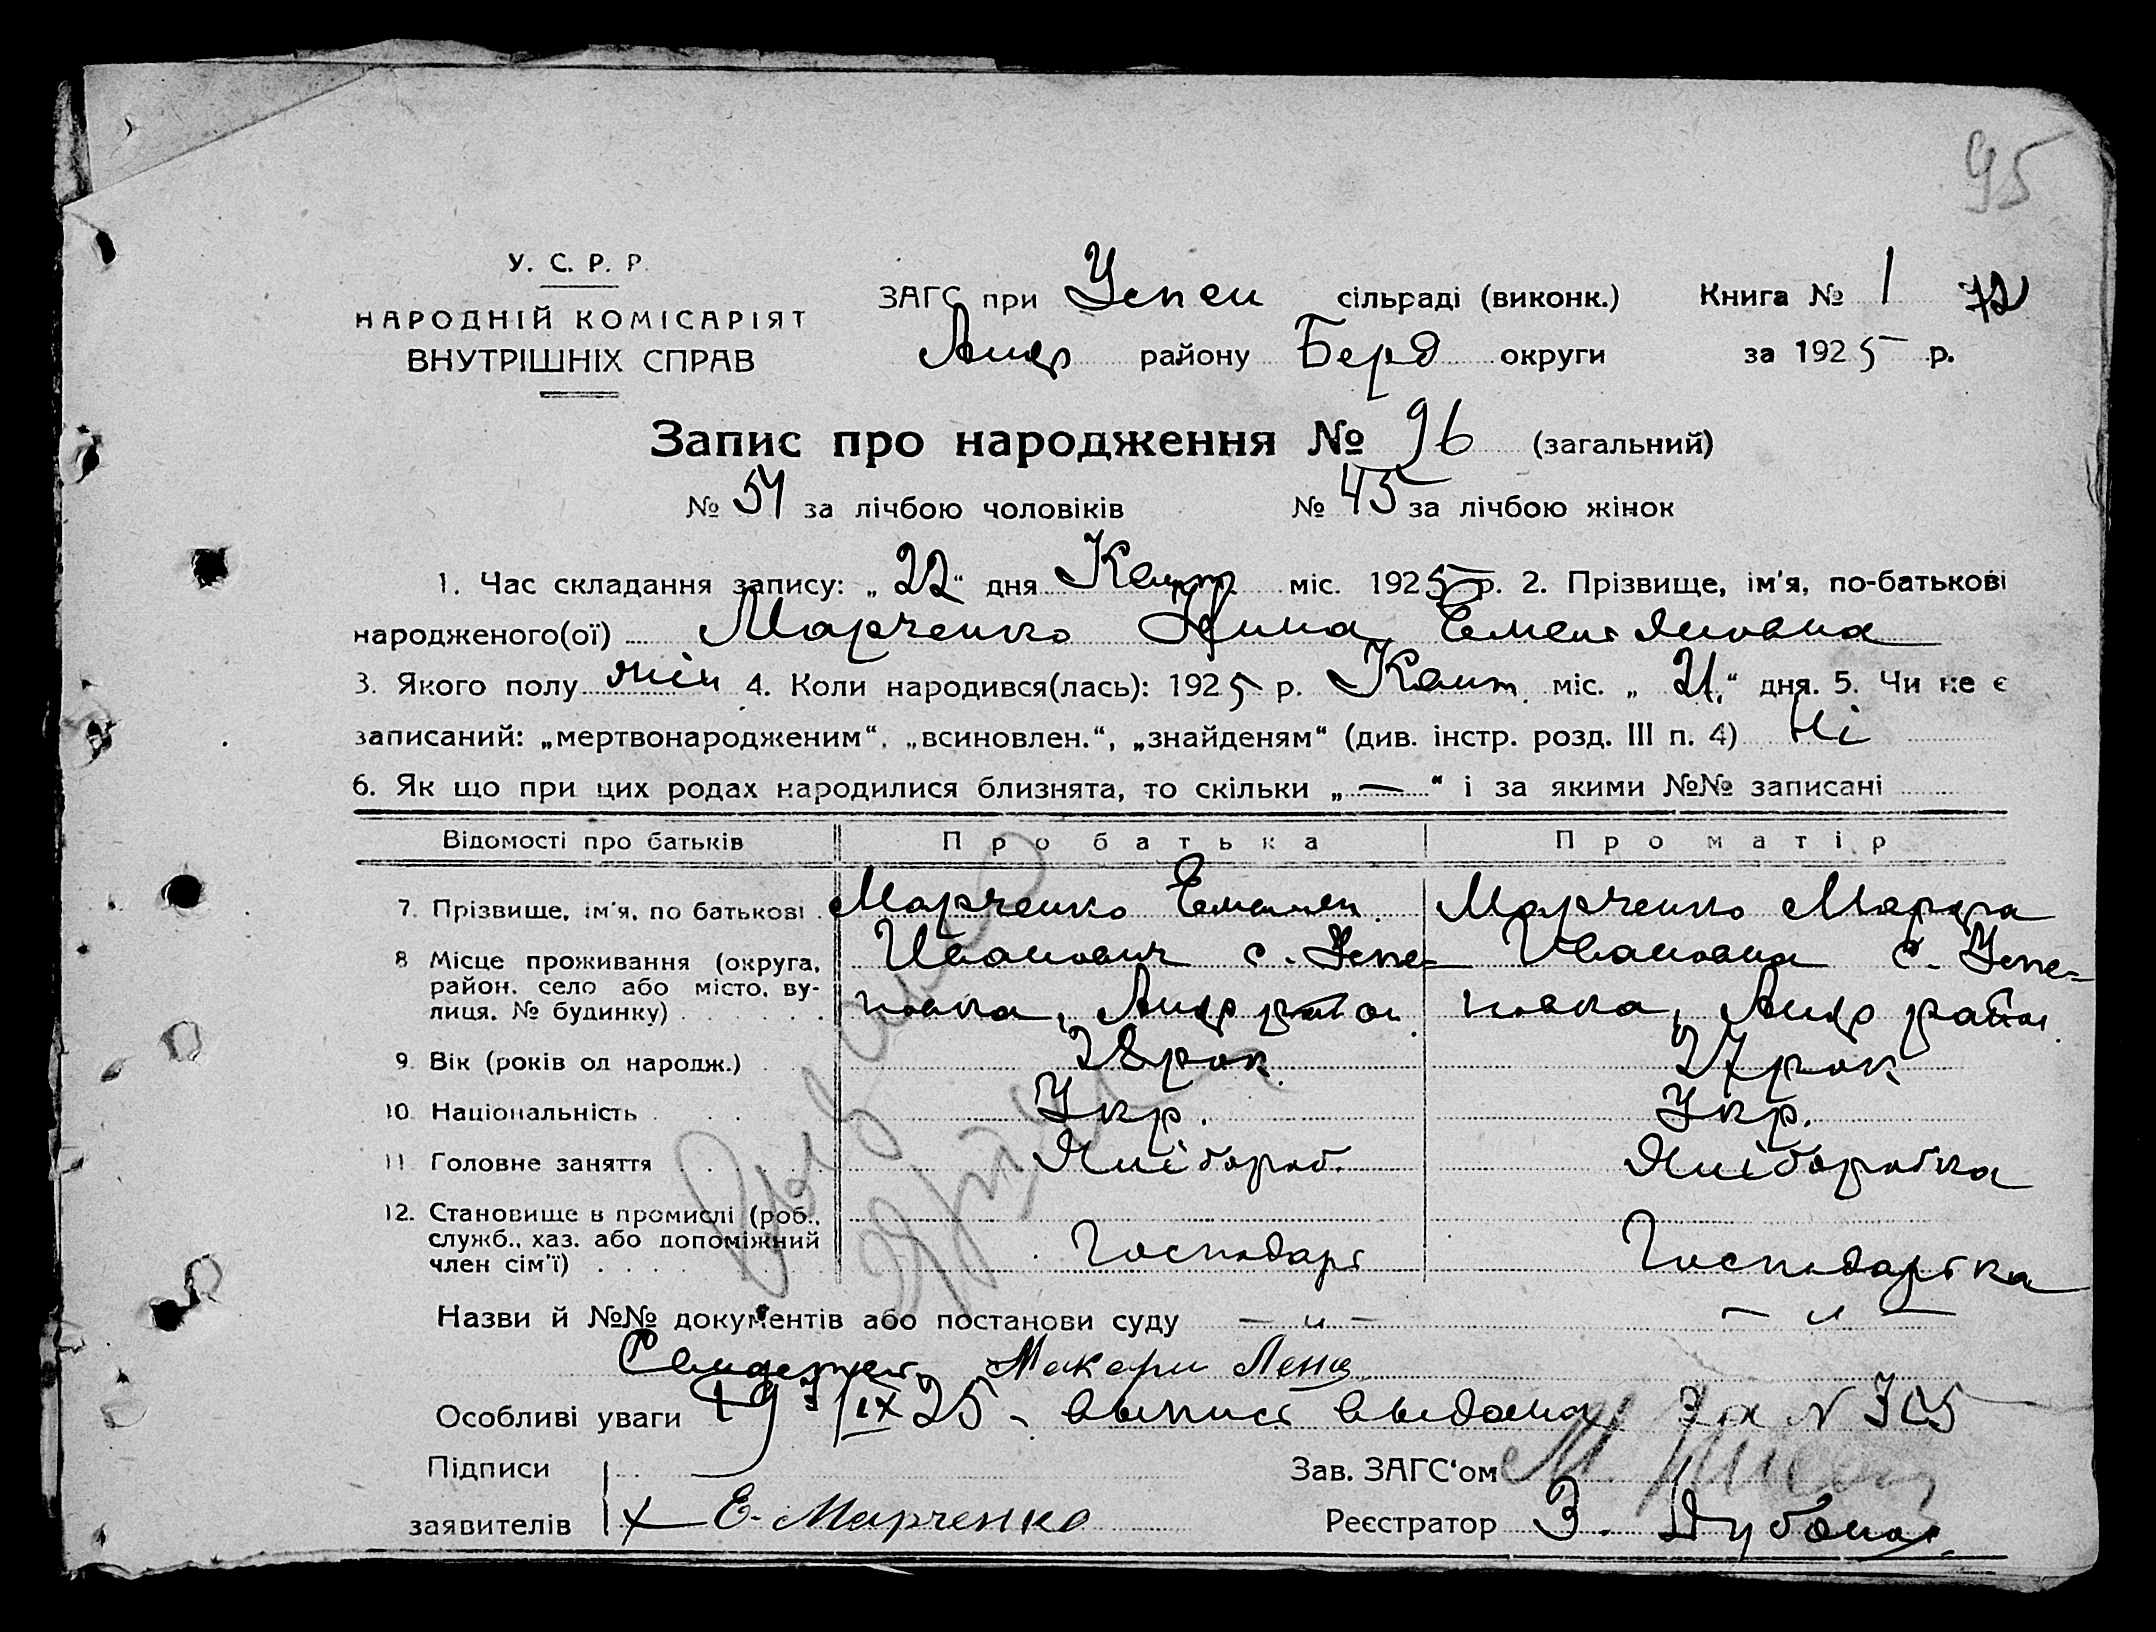 95
У. С. Р. Р.
НАРОДНІЙ КОМІСАРІЯТ
ВНУТРІШНІХ СПРАВ
ЗАГС при Успен сільраді (виконк.) Книга № 1 72
Андр району Берд округи за 1925 р.
Запис про народження № 96 (загальний)
№ 51 за лічбою чоловіків № 45 за лічбою жінок
1. Час складання запису: „22“ дня міс. 1925 р. 2. Прізвище, ім'я, по-батькові
народженого(ої) Марченко
3. Якого полу жін 4. Коли народився(лась): 1925 р. міс. „21“ дня. 5. Чи не є
записаний: „мертвонародженим“, „всиновлен.“, „знайденям“ (див. інстр. розд. III п. 4) Ні
6. Як що при цих родах народилися близнята, то скільки „—“ і за якими №№ записані
Відомості про батьків Про батька Про матір
7. Прізвище, ім'я, по батькові Марченко Марченко
8 Місце проживання (округа, Иванович с. Успе= Ивановна с. Успе=
район, село або місто, ву-
лиця, № будинку) новка, Андр район новка, Андр район
9. Вік (років од народж.) 28 рок 27 рок
10. Національність Укр. Укр.
11 Головне заняття Хлібороб. Хліборобка
12. Становище в промислі (роб.,
служб., хаз. або допоміжний Господарь Господарька
член сім'ї)
Назви й №№ документів або постанови суду — „ — — „ —
Макари
Особливі уваги 19 /IX 25 - выпись выдана за N
Підписи Зав. ЗАГС'ом
заявителів Е. Марченко Реєстратор З.